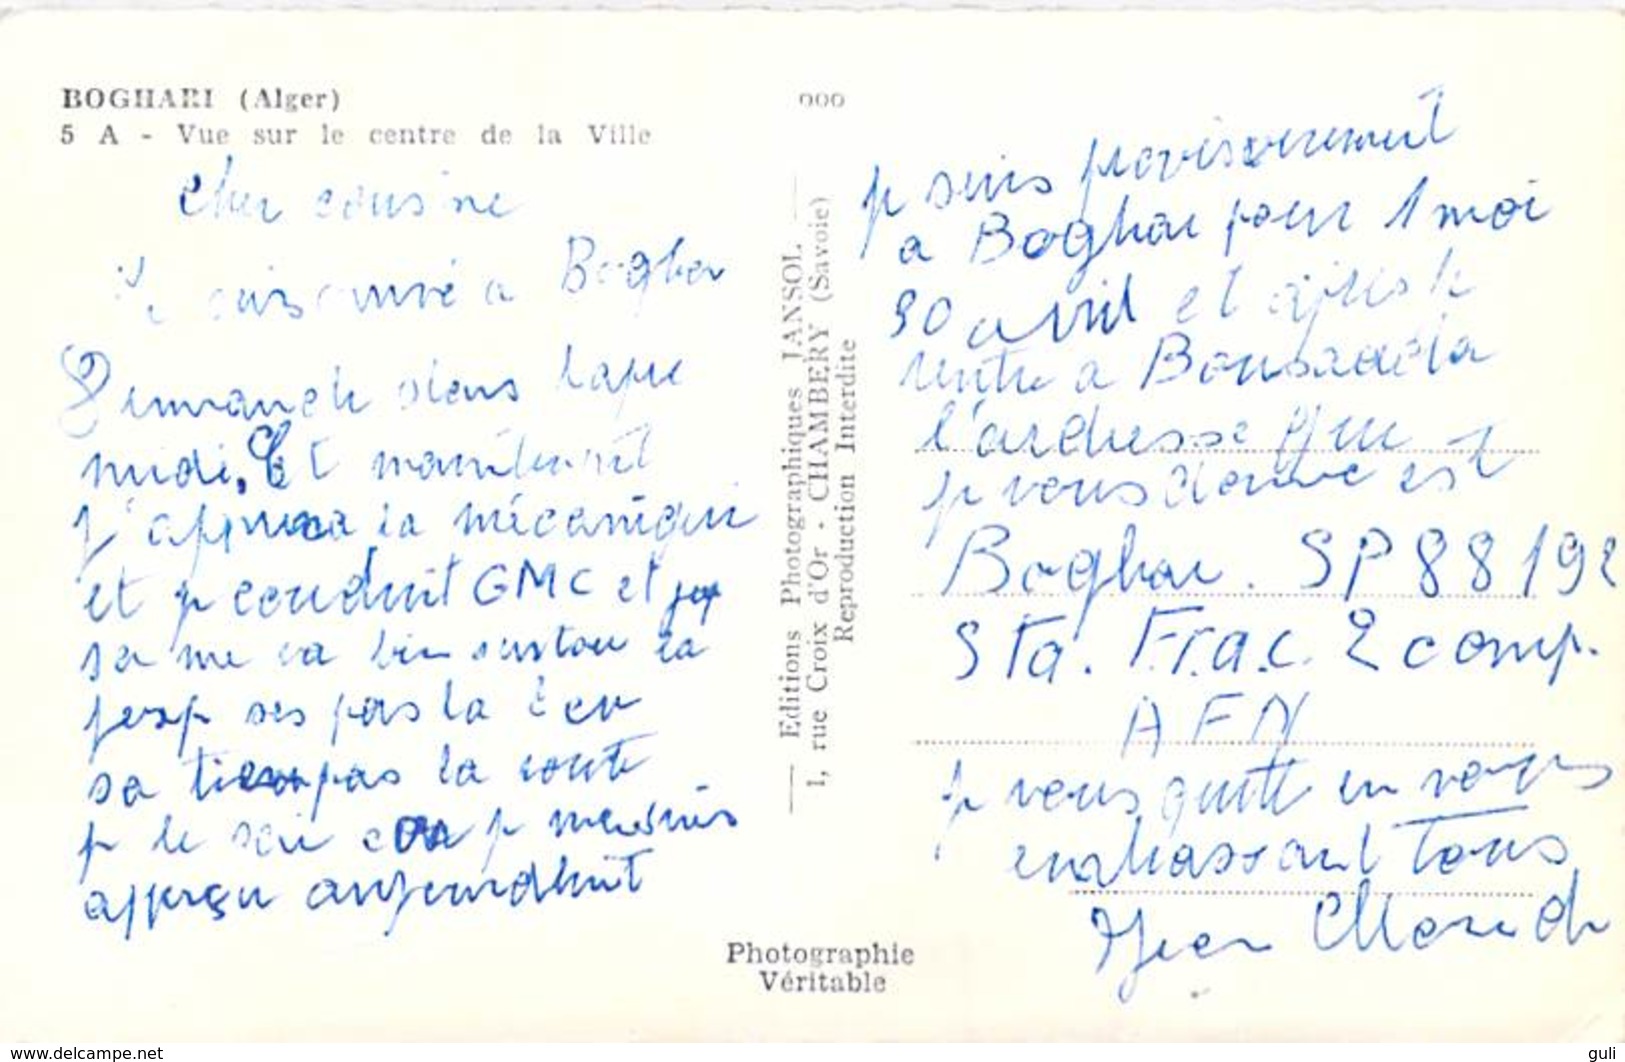 BOGHARI (Alger)
5 A - Vue sur le centre de la Ville
Cher cousine
Je suis arrivé a Boghar
Dimanche dens lapre
midi, Et maintenent
j'apprend la mécanique
et je conduit GMC et
sa me va bien surtou la
jeep ses pas la
sa tien pas la route
je le sui je me suis
apperçu aujourdhuit
000
Editions Photographiques JANSOL
1, rue Croix d'Or - CHAMBERY (Savoie)
Reproduction Interdite
Photographie
Véritable
je suis provisoirement
a Boghar pour 1 moi
30 avril et apres je
rentre a Boussaada
l'ardresse que
je vous donne est
Boghar. SP 88192
Sta. F.r.a.c. 2 comp.
AFN
je vous quitte en vous
enbrassant tous
Jean Claude
www.delcampe.net
guli